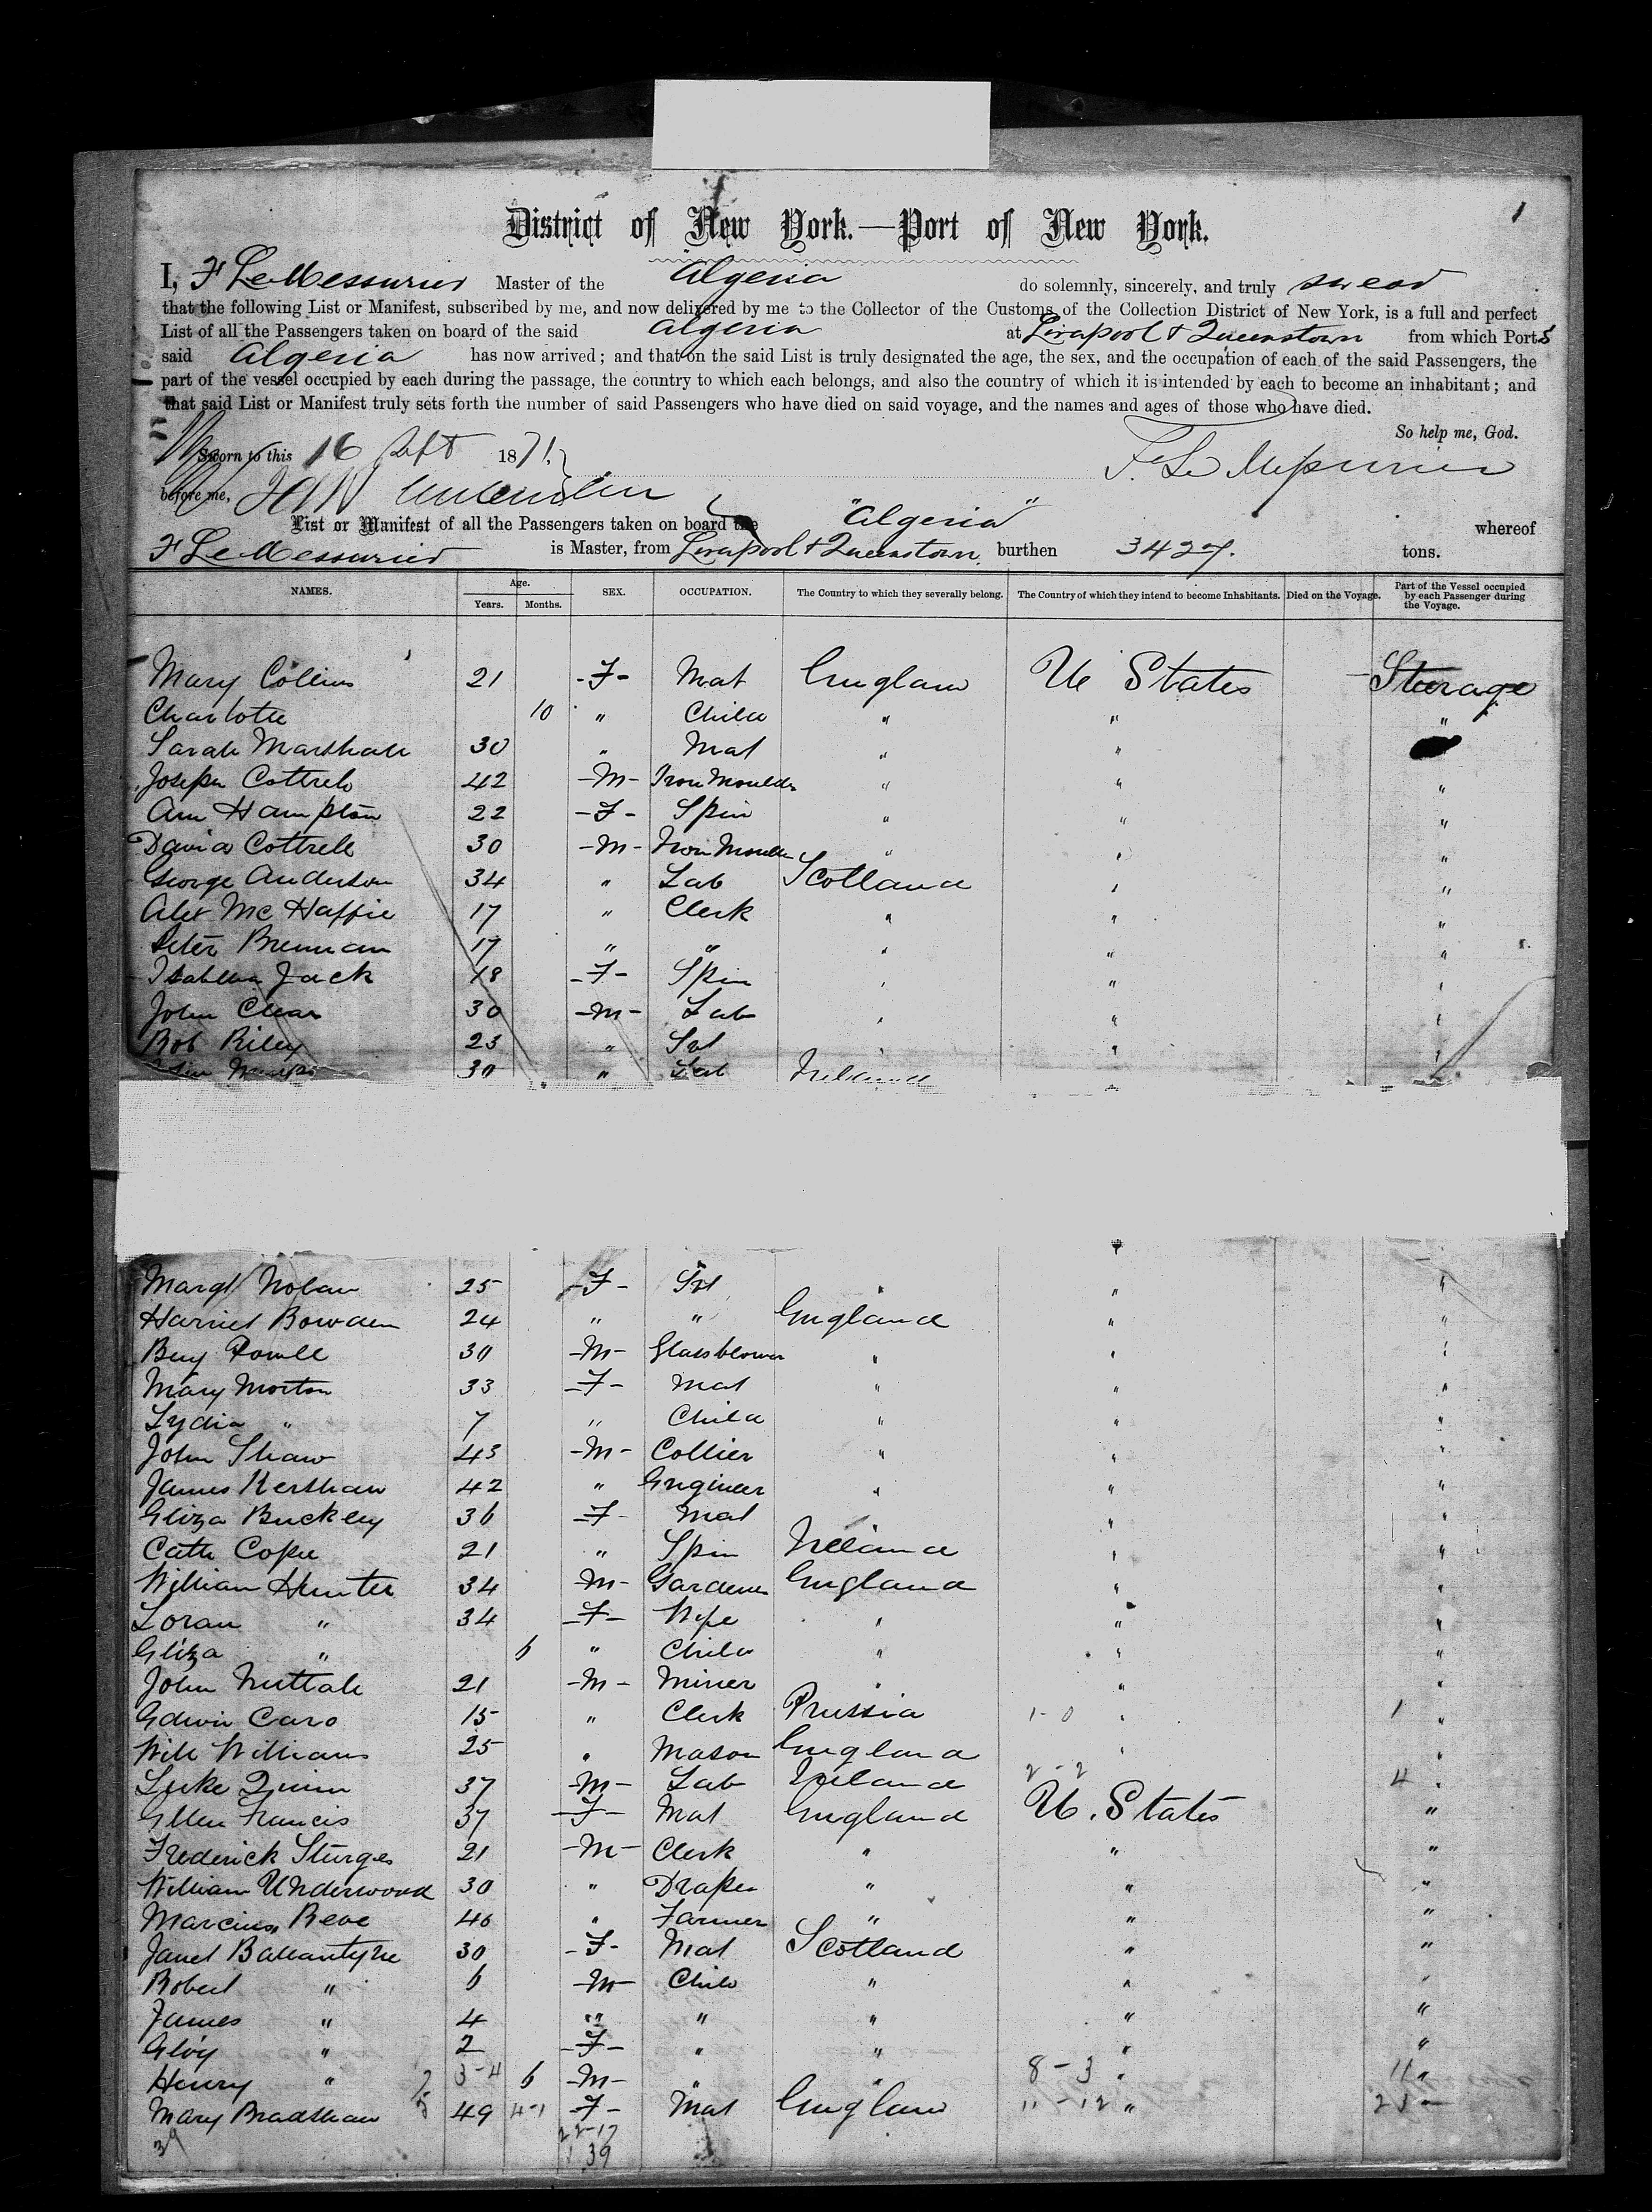 1
District of New York.—Port of New York.
I, F LeMessurier Master of the Algeria do solemnly, sincerely, and truly swear
that the following List or Manifest, subscribed by me, and now delivered by me to the Collector of the Customs of the Collection District of New York, is a full and perfect
List of all the Passengers taken on board of the said Algeria at Liverpool & Queenstown from which Ports
said Algeria has now arrived; and that on the said List is truly designated the age, the sex, and the occupation of each of the said Passengers, the
part of the vessel occupied by each during the passage, the country to which each belongs, and also the country of which it is intended by each to become an inhabitant; and
that said List or Manifest truly sets forth the number of said Passengers who have died on said voyage, and the names and ages of those who have died.
So help me, God.
Sworn to this 16 Sept 1871. F. Le Messurier
before me,
List or Manifest of all the Passengers taken on board the "Algeria" whereof
F LeMessurier is Master, from Liverpool & Queenstown, burthen 3427. tons.
NAMES. Age. Years. Months. SEX. OCCUPATION. The Country to which they severally belong. The Country of which they intend to become Inhabitants. Died on the Voyage. Part of the Vessel occupied by each Passenger during the Voyage.
Mary Collins 21 -F- Mat England U States Sturage
Charlotte 10 " Child " " "
Sarah Marshall 30 " Mat " "
Joseph Cottrell 42 -M- Iron Moulder " " "
Ann Hampton 22 -F- Spin " " "
David Cottrell 30 -M- Iron Moulder " " "
George Anderson 34 " Lab Scotland " "
Alex McHaffie 17 " Clerk " " "
Peter Brennan 17 " " " " "
Isabella Jack 18 -F- Spin " " "
John Clear 30 -M- Lab " " "
Bob Riley 23 " Svt " " "
30 " Lab Ireland "
Margt Nolan 25 -F- Svt " " "
Harriet Bowden 24 " " England " "
Benj Powell 30 -M- Glassblower " " "
Mary Morton 33 -F- Mat " " "
Lydia " 7 " Child " " "
John Shaw 43 -M- Collier " " "
James Kershaw 42 " Engineer " " "
Eliza Buckley 36 -F- Mat " "
Cath Cope 21 " Spin Ireland " "
William Hunter 34 -M- Gardener England " "
Loran " 34 -F- Wife " " "
Eliza " 6 " Child " " "
John Nuttall 21 -M- Miner " " "
Edwin Caro 15 " Clerk Prussia 1-0 " 1 "
Will Williams 25 " Mason England " "
Luke Quinn 37 -M- Lab Ireland 2-2 4 "
Ellen Francis 37 -F- Mat England U. States "
Frederick Sturges 21 -M- Clerk " " "
William Underwood 30 " Draper " " "
Marcius Reve 46 " Farmer " " "
Janet Ballantyne 30 -F- Mat Scotland " "
Robert " 6 -M- Child " " "
James " 4 " " " " "
" 2 -F- " " " "
Henry " 3-4 6 -M- " " 8-3 " 11 "
Mary Bradshaw 49 4-1 -F- Mat England 11-12 "
22-17
39